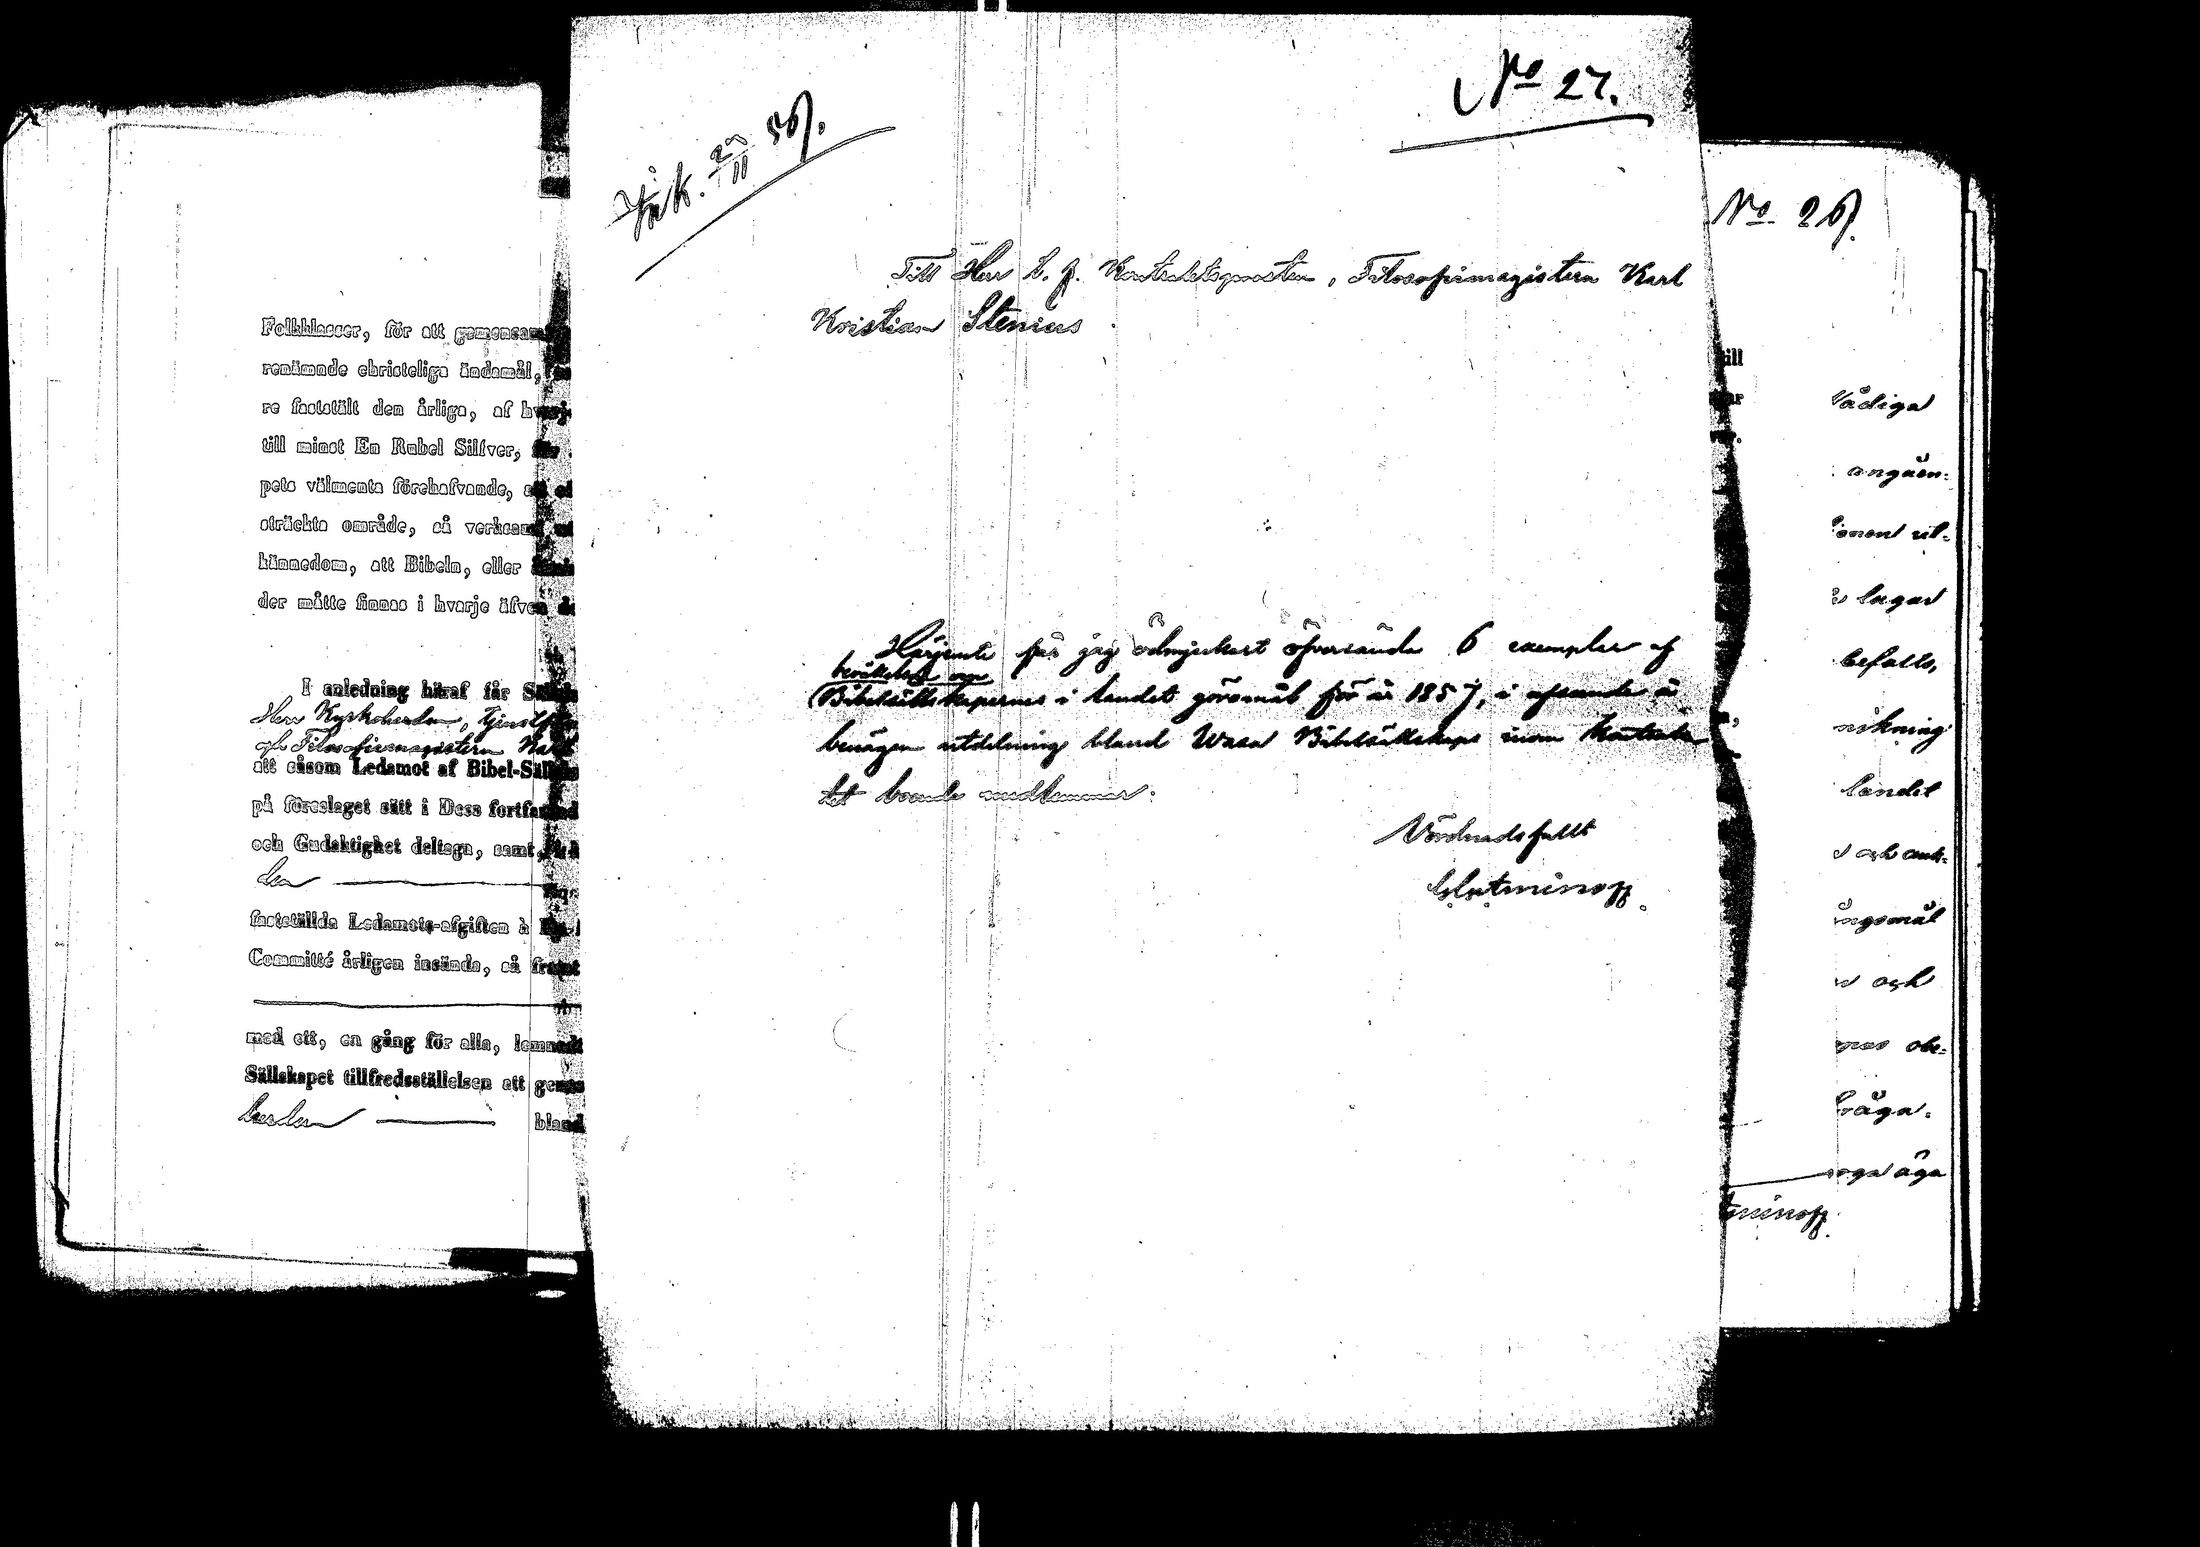 Folkklasser, för att gemensam
renämnde christeliga ändamål,
re fastställt den årliga, af hvarj
till minst En Rubel Silfver, för
pets välmenta förehafvande, att ef
sträckta område, så verksamt
kännedom, att Bibeln, eller
der måtte finnas i hvarje äfven de
I anledning häraf får Sälls
Herr Kyrkoherden,
och Filosofiemagistern Karl
att såsom Ledamot af Bibel-Sälls
på föreslaget sätt i Dess fortfarand
och Gudaktighet deltaga, samt,
den
fastställda Ledamots-afgiften à
Committé årligen insända, så framt
med ett, en gång för alla, lemnadt
Sällskapet tillfredsställelsen att genas
herden bland
No 27.
Ink. 27/11 56.
Till Herr t. f. Kontraktsprosten, Filosofiemagistern Karl
Kristian Stenius
Härjemte får jag ödmjukast öfversända 6 exemplar af
berättelsen om
Bibelsällskapernas i landet göromål för år 1857, i afseende å
benägen utdelning bland Wasa Bibelsällskaps inom Kontrak
tet boende medlemmar.
Vördnadsfullt
No 26.
till
ådiga
angåen-
lagar
befatts,
landet
och
råga.
äga